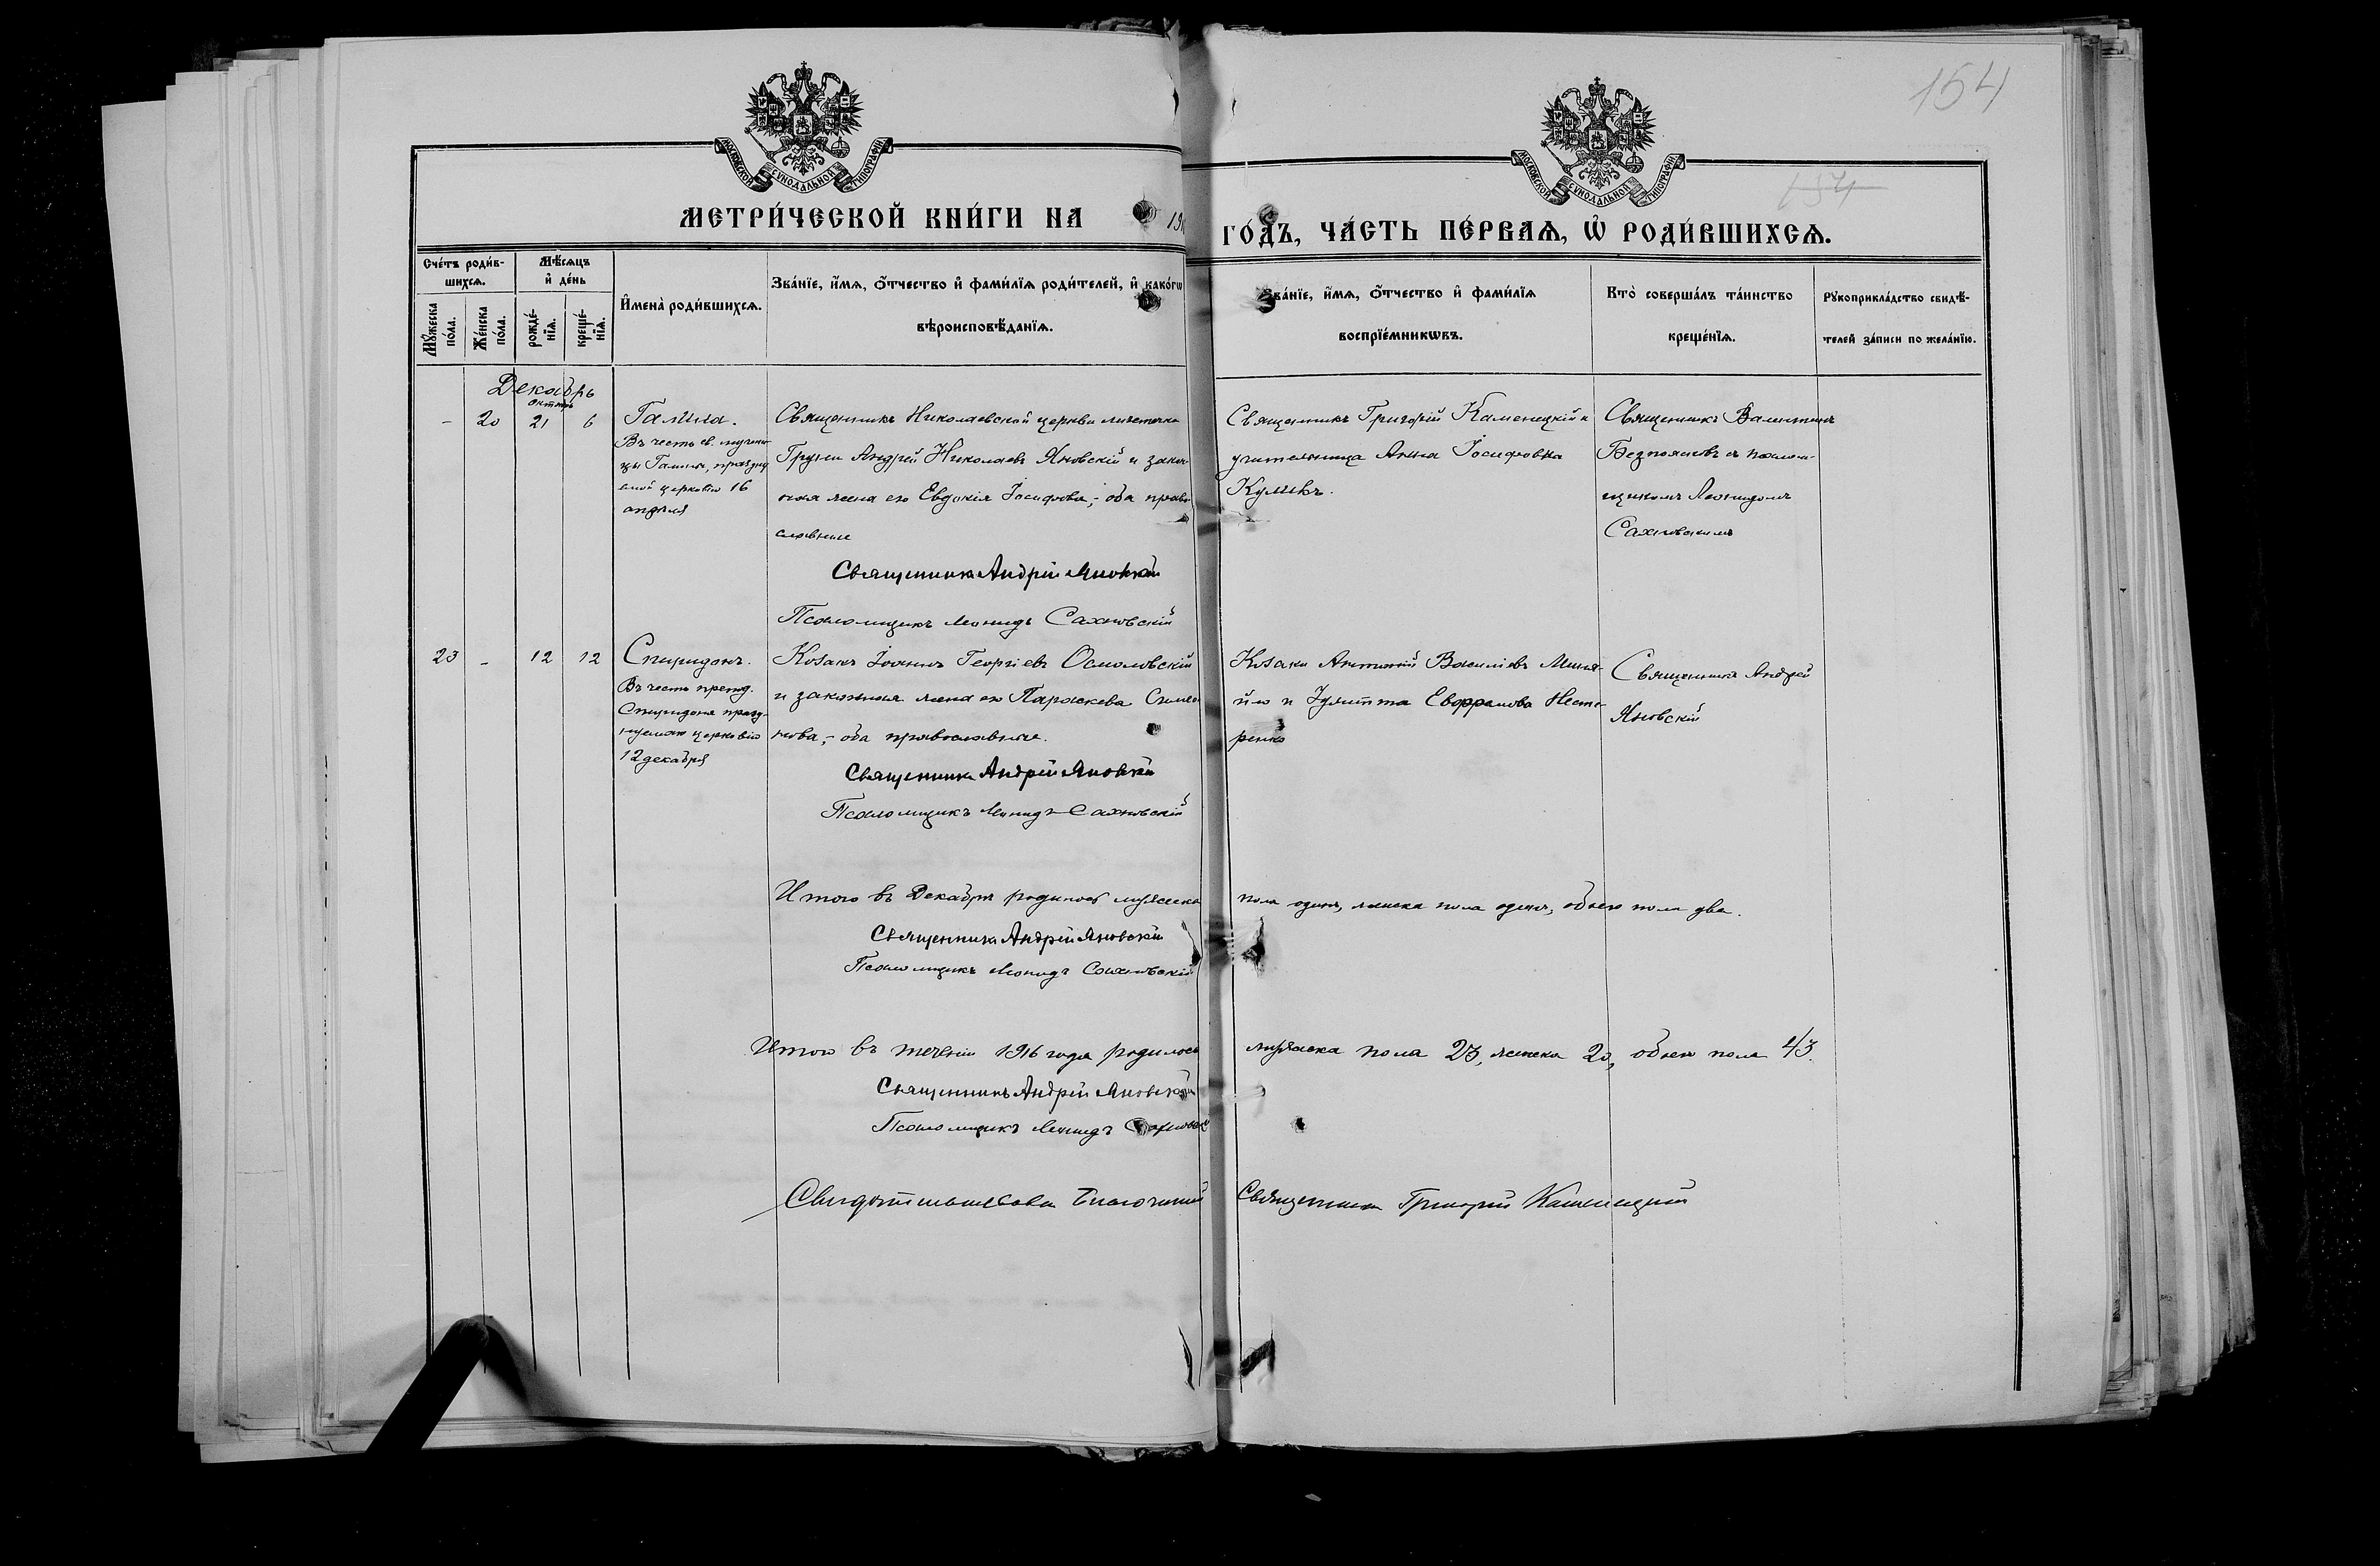 154
МОСКОВСКОЙ СѴНОДАЛЬНОЙ ТИПОГРАФІИ
МОСКОВСКОЙ СѴНОДАЛЬНОЙ ТИПОГРАФІИ
154
МЕТРИ́ЧЕСКОЙ КНИ́ГИ НА 191
ГО́ДЪ, ЧА́СТЬ ПЕ́РВАѦ, Ѡ РОДИ́ВШИХСѦ.
Сче́тъ роди́в-
шихсѧ.
Мꙋ́жеска по́ла.
Же́нска по́ла.
Мѣ́сѧцъ
и де́нь
рожде́-нїѧ.
креще́-нїѧ.
Имена̀ роди́вшихсѧ.
Зва́нїе, и́мѧ, о́тчество и фами́лїѧ роди́телей, и како́гѡ
вѣроисповѣ́данїѧ.
Зва́нїе, и́мѧ, о́тчество и фами́лїѧ
воспрїе́мникѡвъ.
Кто̀ соверша́лъ та́инство
креще́нїѧ.
Рꙋкоприкла́дство свидѣ́-
телей за́писи по жела́нїю.
Декабрь
октябрь
- 20 21 6
Галина.
Въ честь св. мучени-
цы Галины, праздну
емой церковію 16
апрѣля
Священникъ Николаевской церкви мѣстечка
Груни Андрей Николаевъ Яновскій и закон-
ная жена его Евдокія Іосифова, - оба право-
славные
Священникъ Андрей Яновскій
Псаломщикъ Леонидъ Сахновскій
Священникъ Григорій Каменецкій и
учительница Анна Іосифовна
Куликъ.
Священникъ Валентинъ
Безпоясовъ съ псалом-
щикомъ Леонидомъ
Сахновскимъ
23 - 12 12
Спиридонъ.
Въ честь препод.
Спиридона празд-
нуемаго церковію
12 декабря
Козакъ Іоаннъ Георгіевъ Осмоловскій
и законная жена его Параскева Симео-
нова, - оба православные.
Священникъ Андрей Яновскій
Псаломщикъ Леонидъ Сахновскій
Козаки Антоній Василіевъ Миня-
йло и Іулитта Евфрамова Несте-
ренко
Священникъ Андрей
Яновскій
Итого въ Декабрѣ родилось мужеска пола одинъ, женска пола одинъ, обоего пола два.
Священникъ Андрей Яновскій
Псаломщикъ Леонидъ Сахновскій
Итого въ теченіи 1916 года родилось мужеска пола 23, женска 20, обоего пола 43.
Священникъ Андрей Яновскій
Псаломщикъ Леонидъ Сахновскій
Свидѣтельствовалъ Благочинный Священникъ Григорій Каменецкій